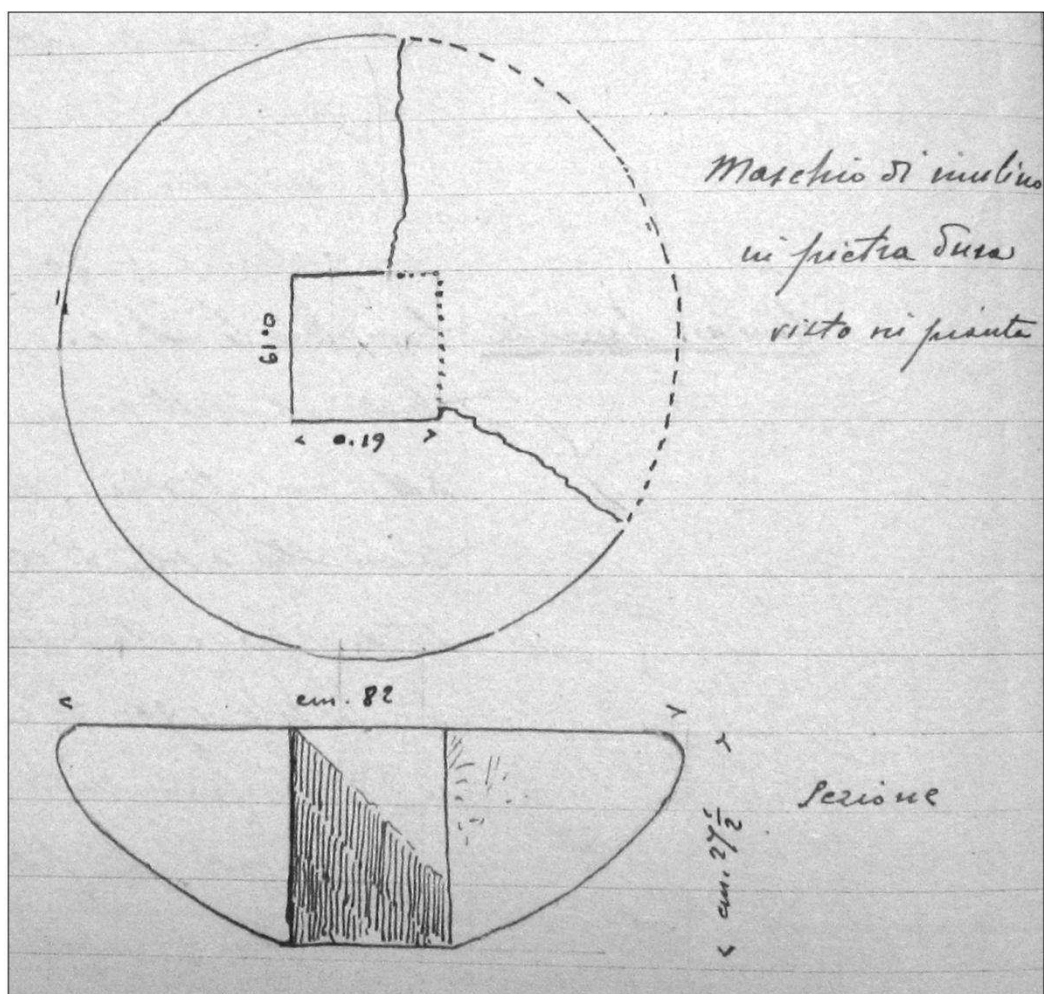 Maschio di mulino
in pietra dura
visto in pianta
0.19
0.19
cm. 82
cm. 27 1/2
Sezione